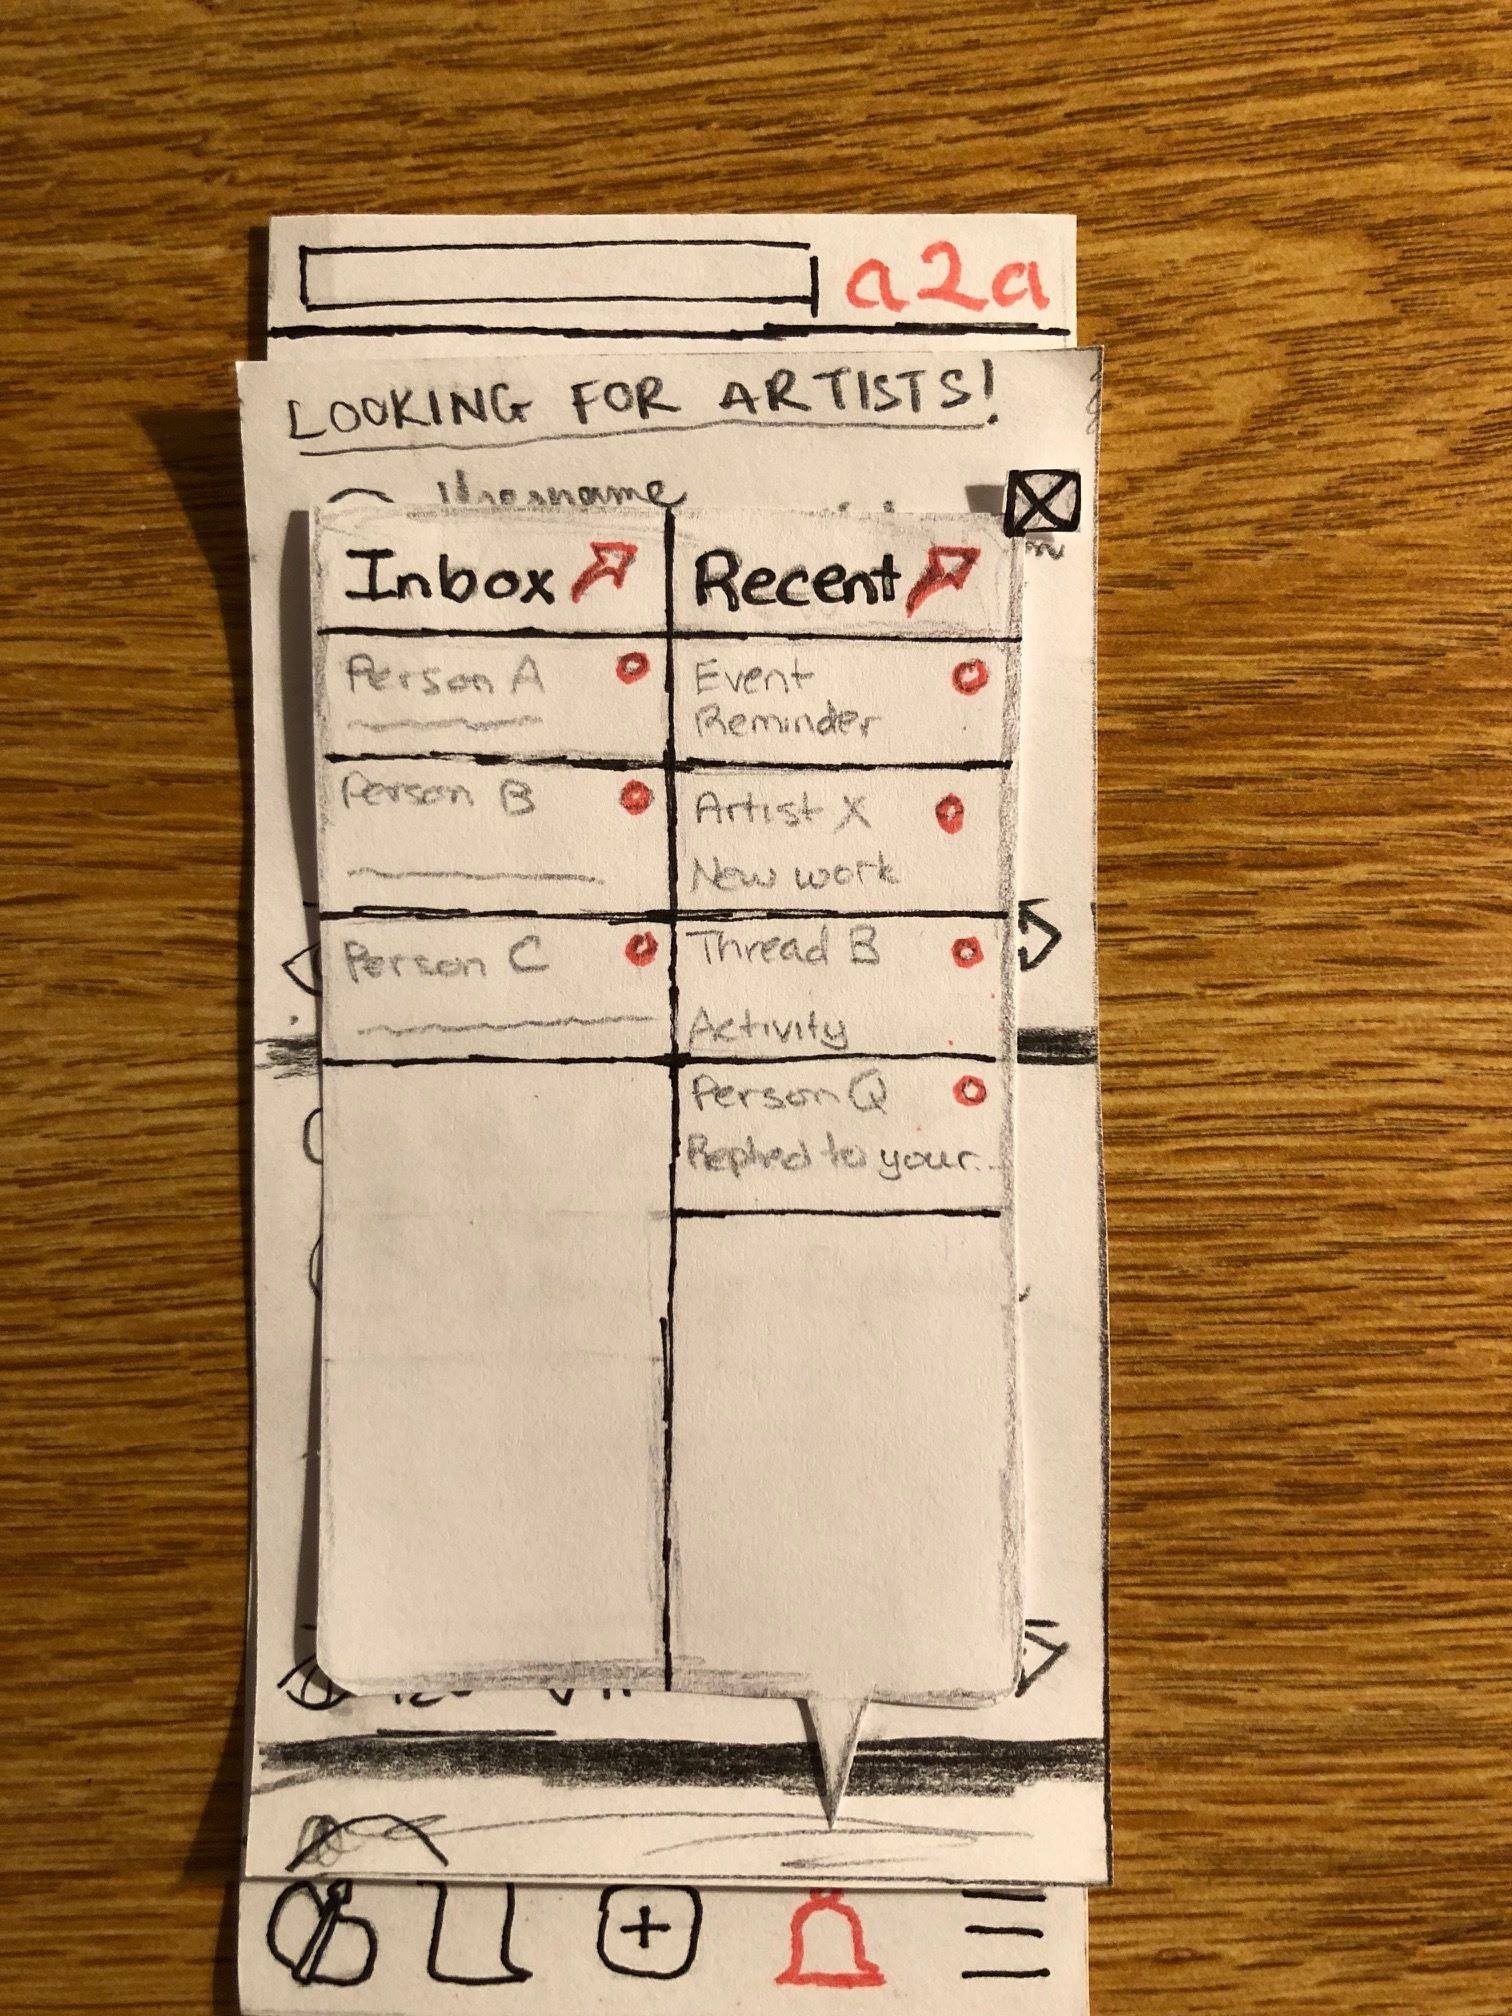 a2a
LOOKING FOR ARTISTS!
Username
Inbox
Recent
Person A
Event
Reminder
Person B
Artist X
New work
Person C
Thread B
Activity
Person Q
Replied to your...